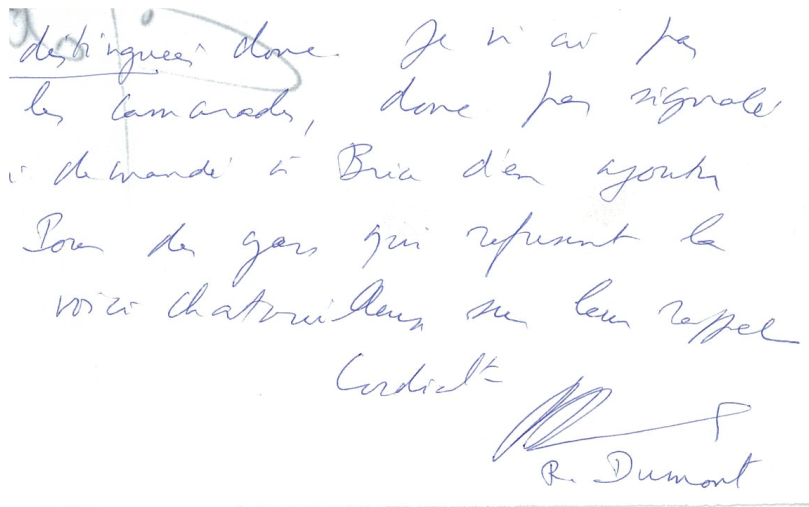 distinguées donc. Je n'ai pas
les camarades, donc pas signalé
demandé à Brice d'en ajouter
Pour des gars qui refusent la
voici chatouilleux sur leur rappel
Cordialt
R. Dumont